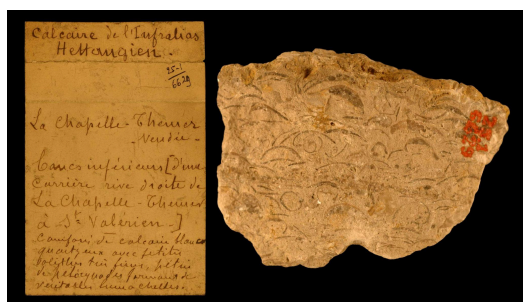 Calcaire de l'Infralias
Hettangien.
25-1
6629
La Chapelle-Themer
- Vendée -
bancs inférieurs [d'une
Carrière rive droite de
La Chapelle-Themer
à St Valérien-]
de calcaire blanc
quartzeux avec petites
oolithes très fines, petits
de pelecypodes formant de
véritables lumachelles.